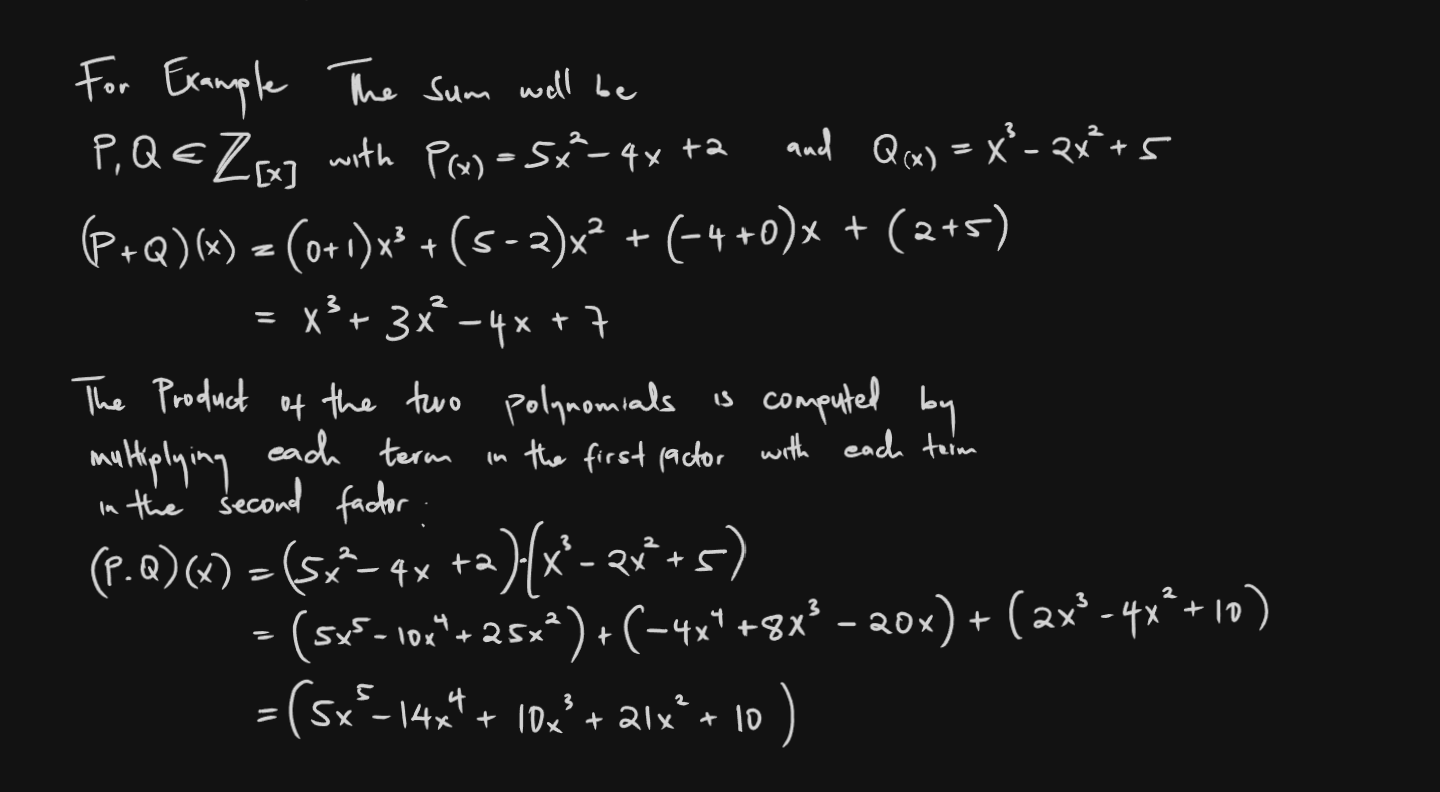 For Example The sum will be
P, Q ∈ ℤ[x] with P(x) = 5x² - 4x + 2 and Q(x) = x³ - 2x² + 5
(P+Q)(x) = (0+1)x³ + (5-2)x² + (-4+0)x + (2+5)
= x³ + 3x² - 4x + 7
The Product of the two polynomials is computed by
multiplying each term in the first factor with each term
in the second factor:
(P.Q)(x) = (5x² - 4x + 2)·(x³ - 2x² + 5)
= (5x⁵ - 10x⁴ + 25x²) + (-4x⁴ + 8x³ - 20x) + (2x³ - 4x² + 10)
= (5x⁵ - 14x⁴ + 10x³ + 21x² + 10)